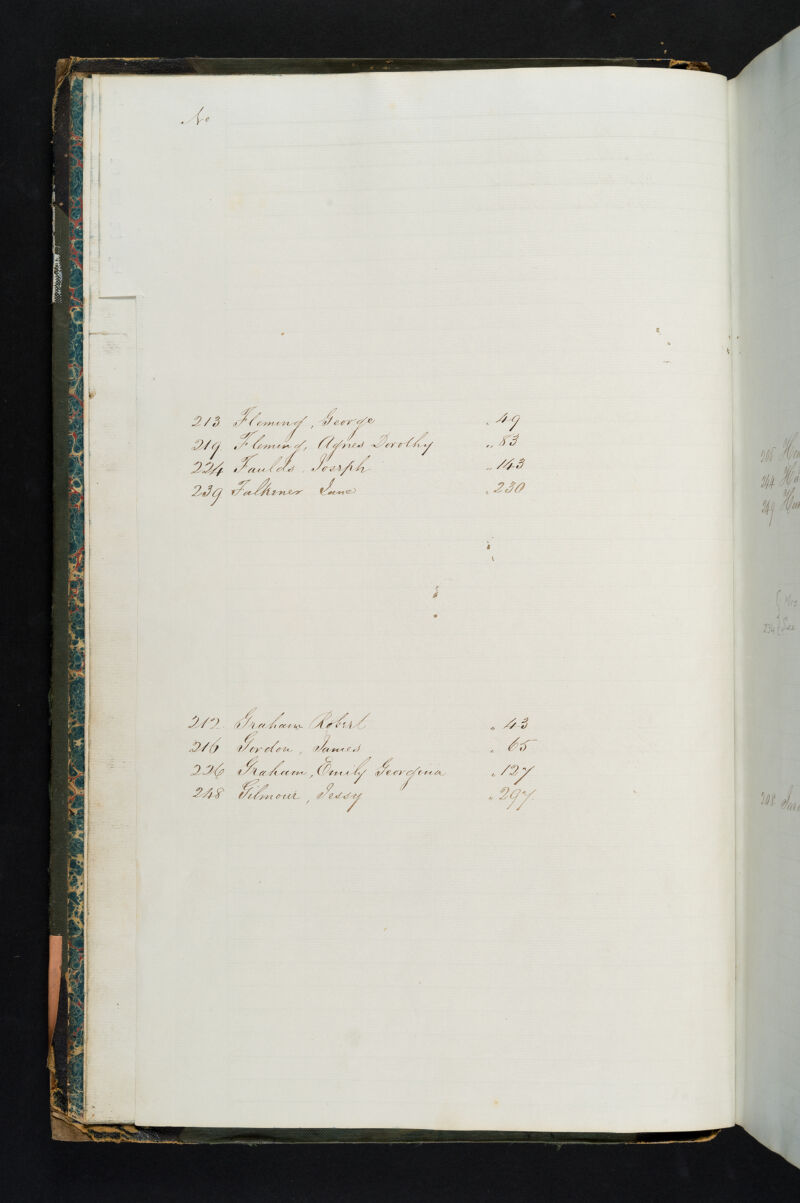 No
213 Fleming, George „ 49
219 Fleming, Agnes Dorothy „ 83
224 Faulds, Joseph „ 143
239 Falkiner Jane „ 230
212 Graham Robert „ 43
216 Gordon, James „ 65
226 Graham, Emily Georgina „ 127
248 Gilmour, Jessy „ 297
234
208